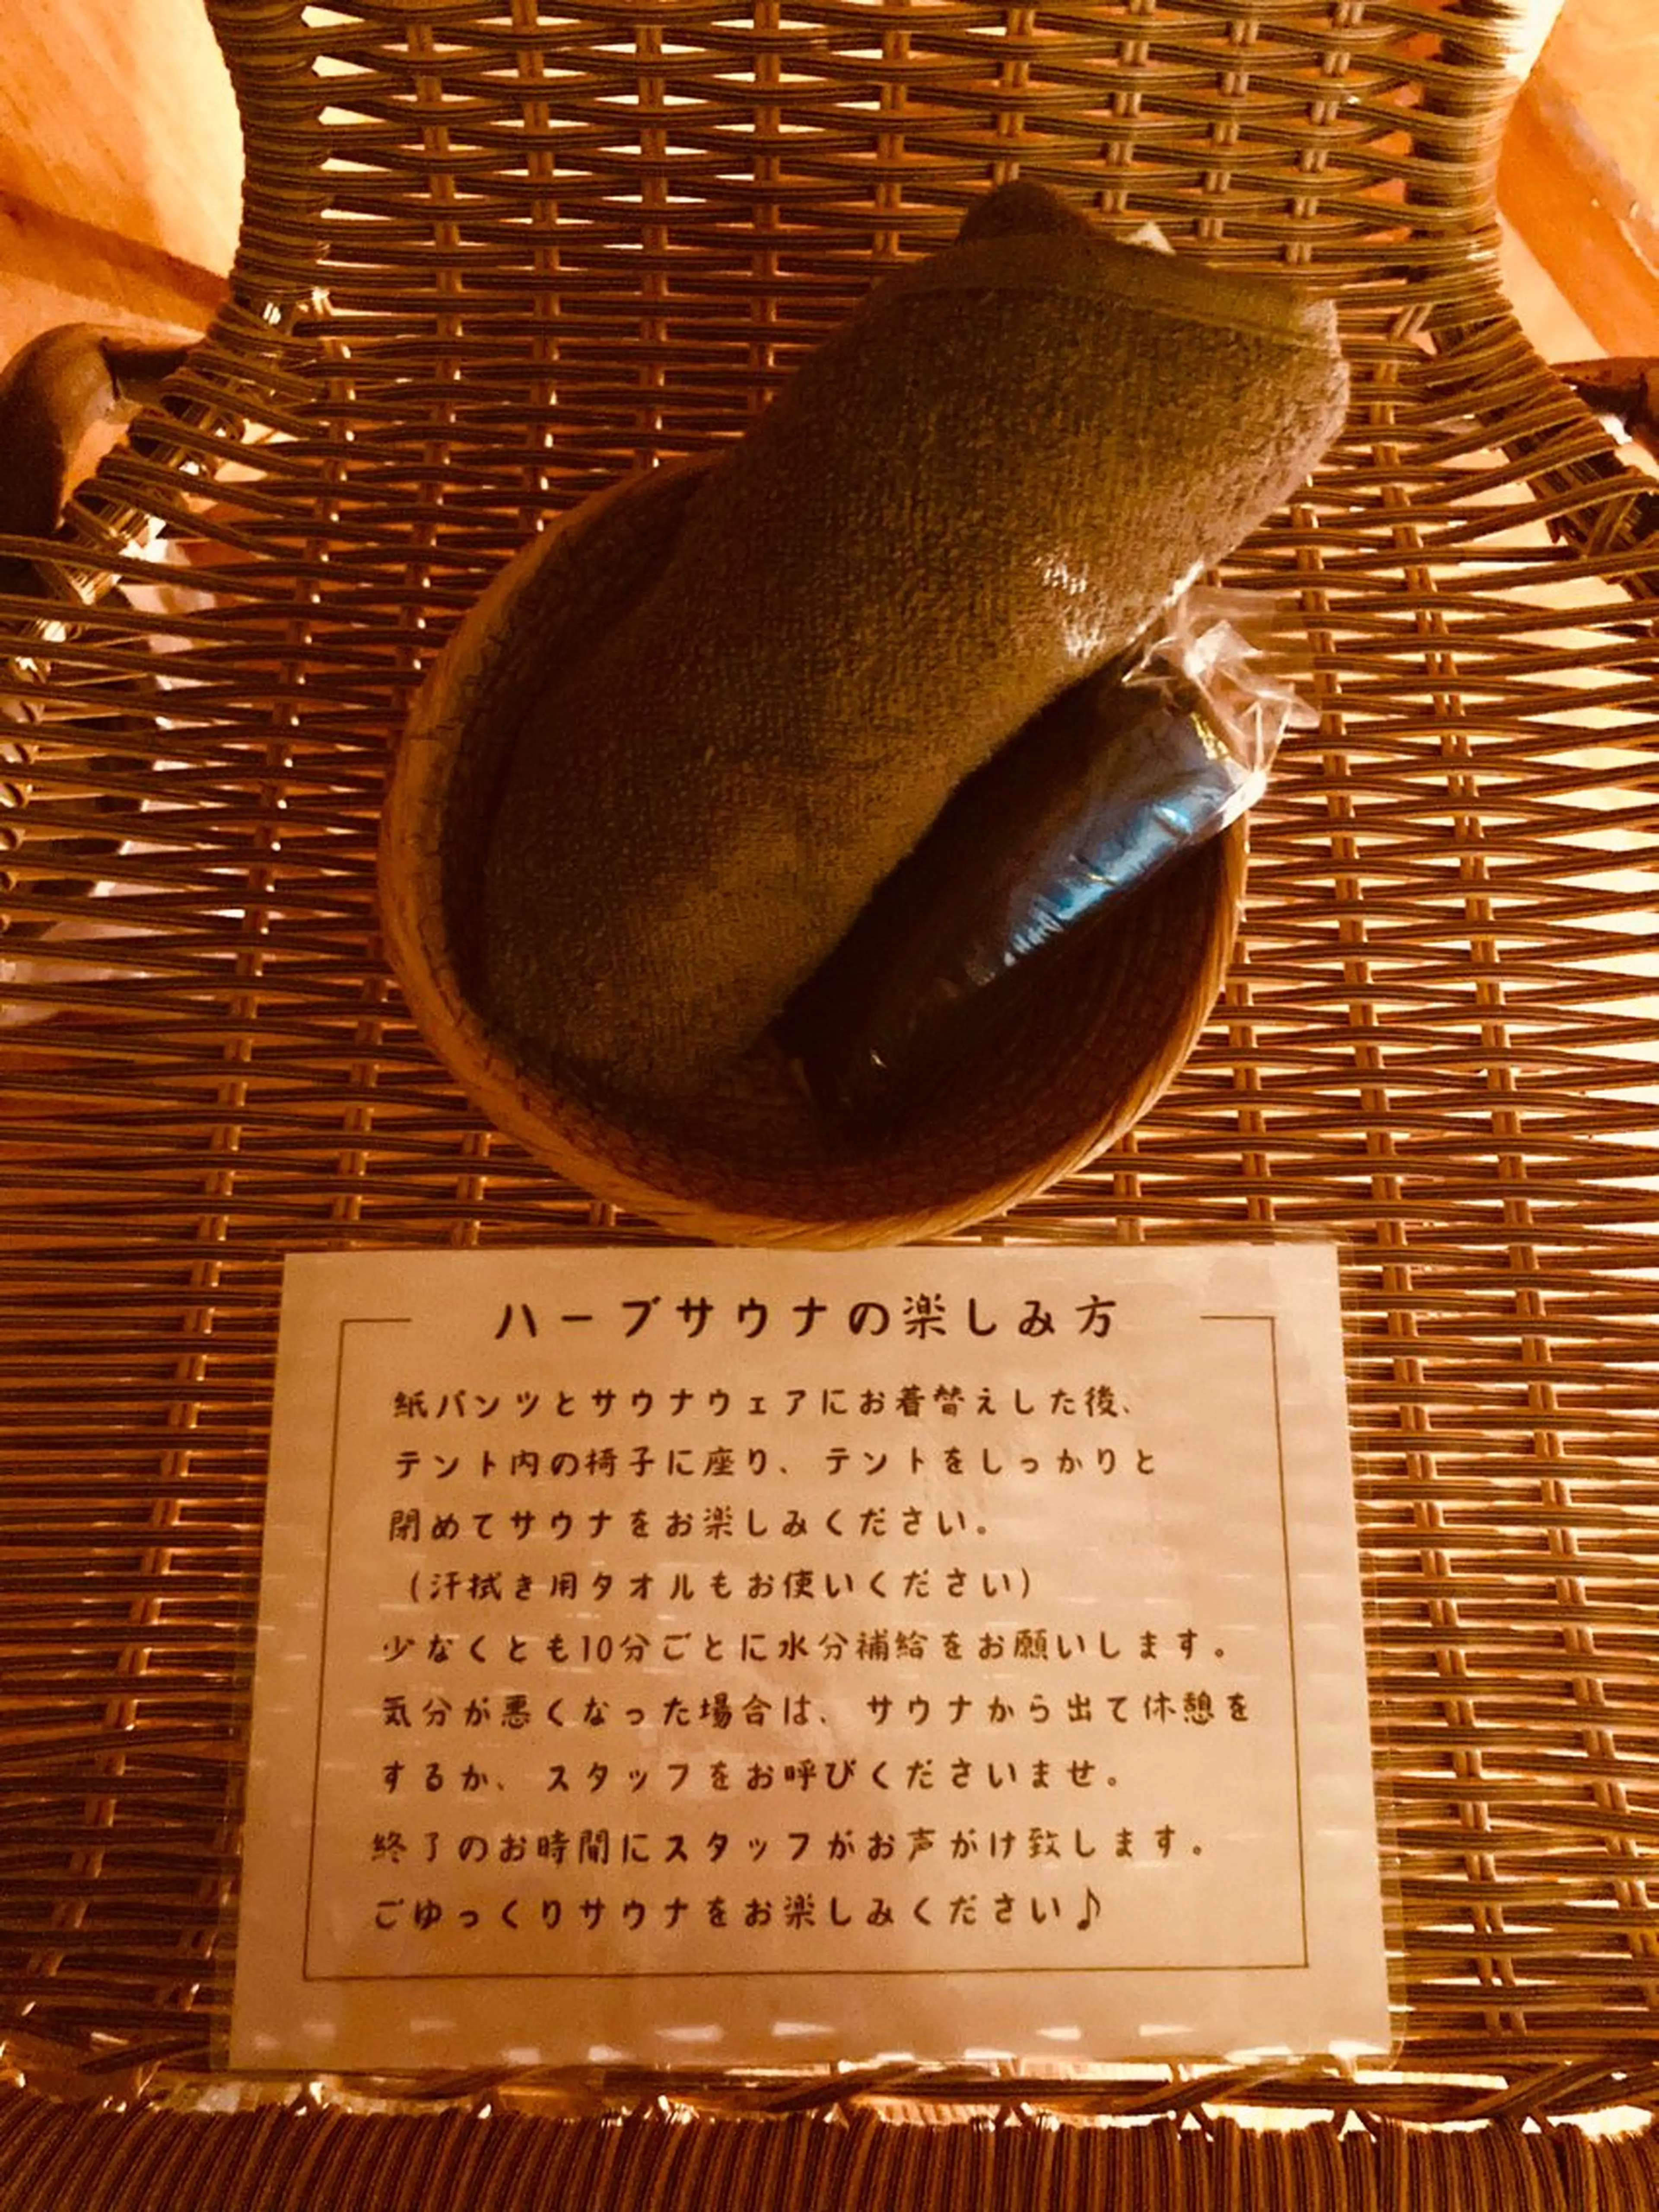 ハーブサウナの楽しみ方
紙パンツとサウナウェアにお着替えした後、
テント内の椅子に座り、テントをしっかりと
閉めてサウナをお楽しみください。
（汗拭き用タオルもお使いください）
少なくとも10分ごとに水分補給をお願いします。
気分が悪くなった場合は、サウナから出て休憩を
するか、スタッフをお呼びくださいませ。
終了のお時間にスタッフがお声がけ致します。
ごゆっくりサウナをお楽しみください♪